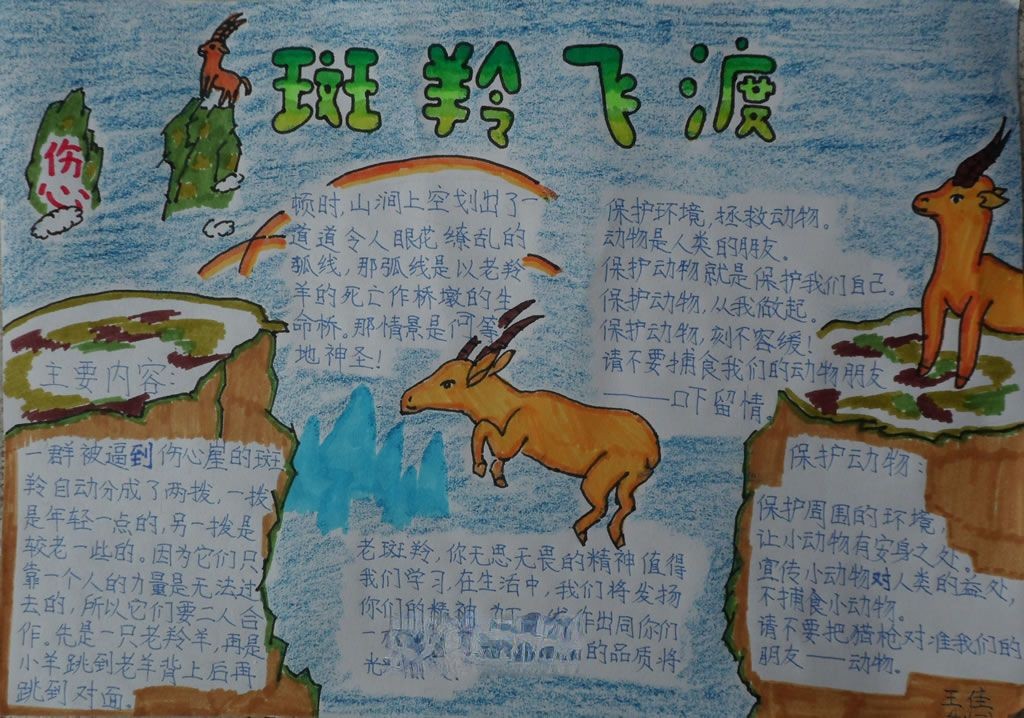 斑羚飞渡
伤
心
顿时,山涧上空划出了一
道道令人眼花缭乱的
弧线,那弧线是以老羚
羊的死亡作桥墩的生
命桥。那情景是何等
地神圣!
保护环境,拯救动物。
动物是人类的朋友。
保护动物就是保护我们自己。
保护动物,从我做起。
保护动物,刻不容缓!
请不要捕食我们的动物朋友
——口下留情。
主要内容:
一群被逼到伤心崖的斑
羚自动分成了两拨,一拨
是年轻一点的,另一拨是
较老一些的。因为它们只
靠一个人的力量是无法过
去的,所以它们要二人合
作。先是一只老羚羊,再是
小羊跳到老羊背上后再
跳到对面。
老斑羚,你无思无畏的精神值得
我们学习,在生活中,我们将发扬
你们的精神 作出同你们
一 的品质将
光
保护动物:
保护周围的环境,
让小动物有安身之处。
宣传小动物对人类的益处,
不捕食小动物。
请不要把猎枪对准我们的
朋友——动物。
王佳